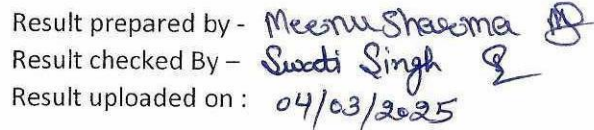 Result prepared by - Meenu Sharma
Result checked By – Swati Singh
Result uploaded on : 04/03/2025